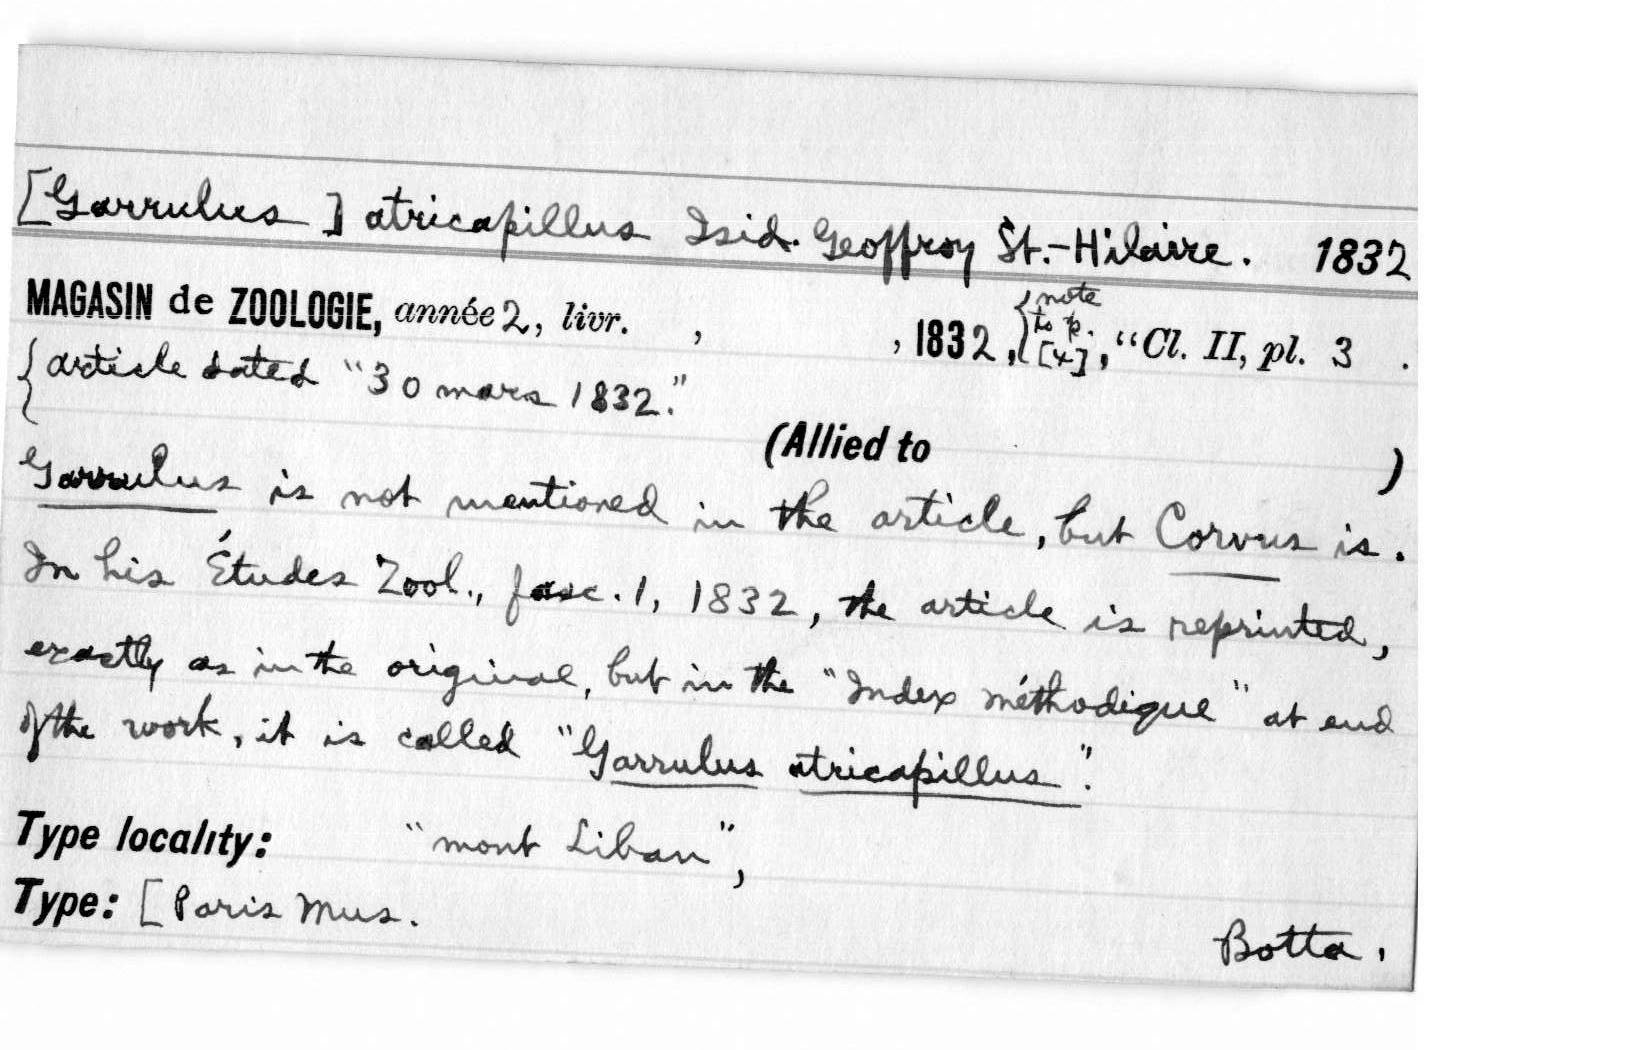 [Garrulus] atricapillus Isid. Geoffroy St.-Hilaire. 1832
MAGASIN de ZOOLOGIE, année 2, livr. , , 1832, {note to p. [4], "Cl. II, pl. 3 .
{article dated "30 mars 1832."
(Allied to )
Garrulus is not mentioned in the article, but Corvus is.
In his Études Zool., fasc. 1, 1832, the article is reprinted,
exactly as in the original, but in the "Index méthodique" at end
of the work, it is called "Garrulus atricapillus".
Type locality: "mont Liban",
Type: [Paris Mus.
Botta.